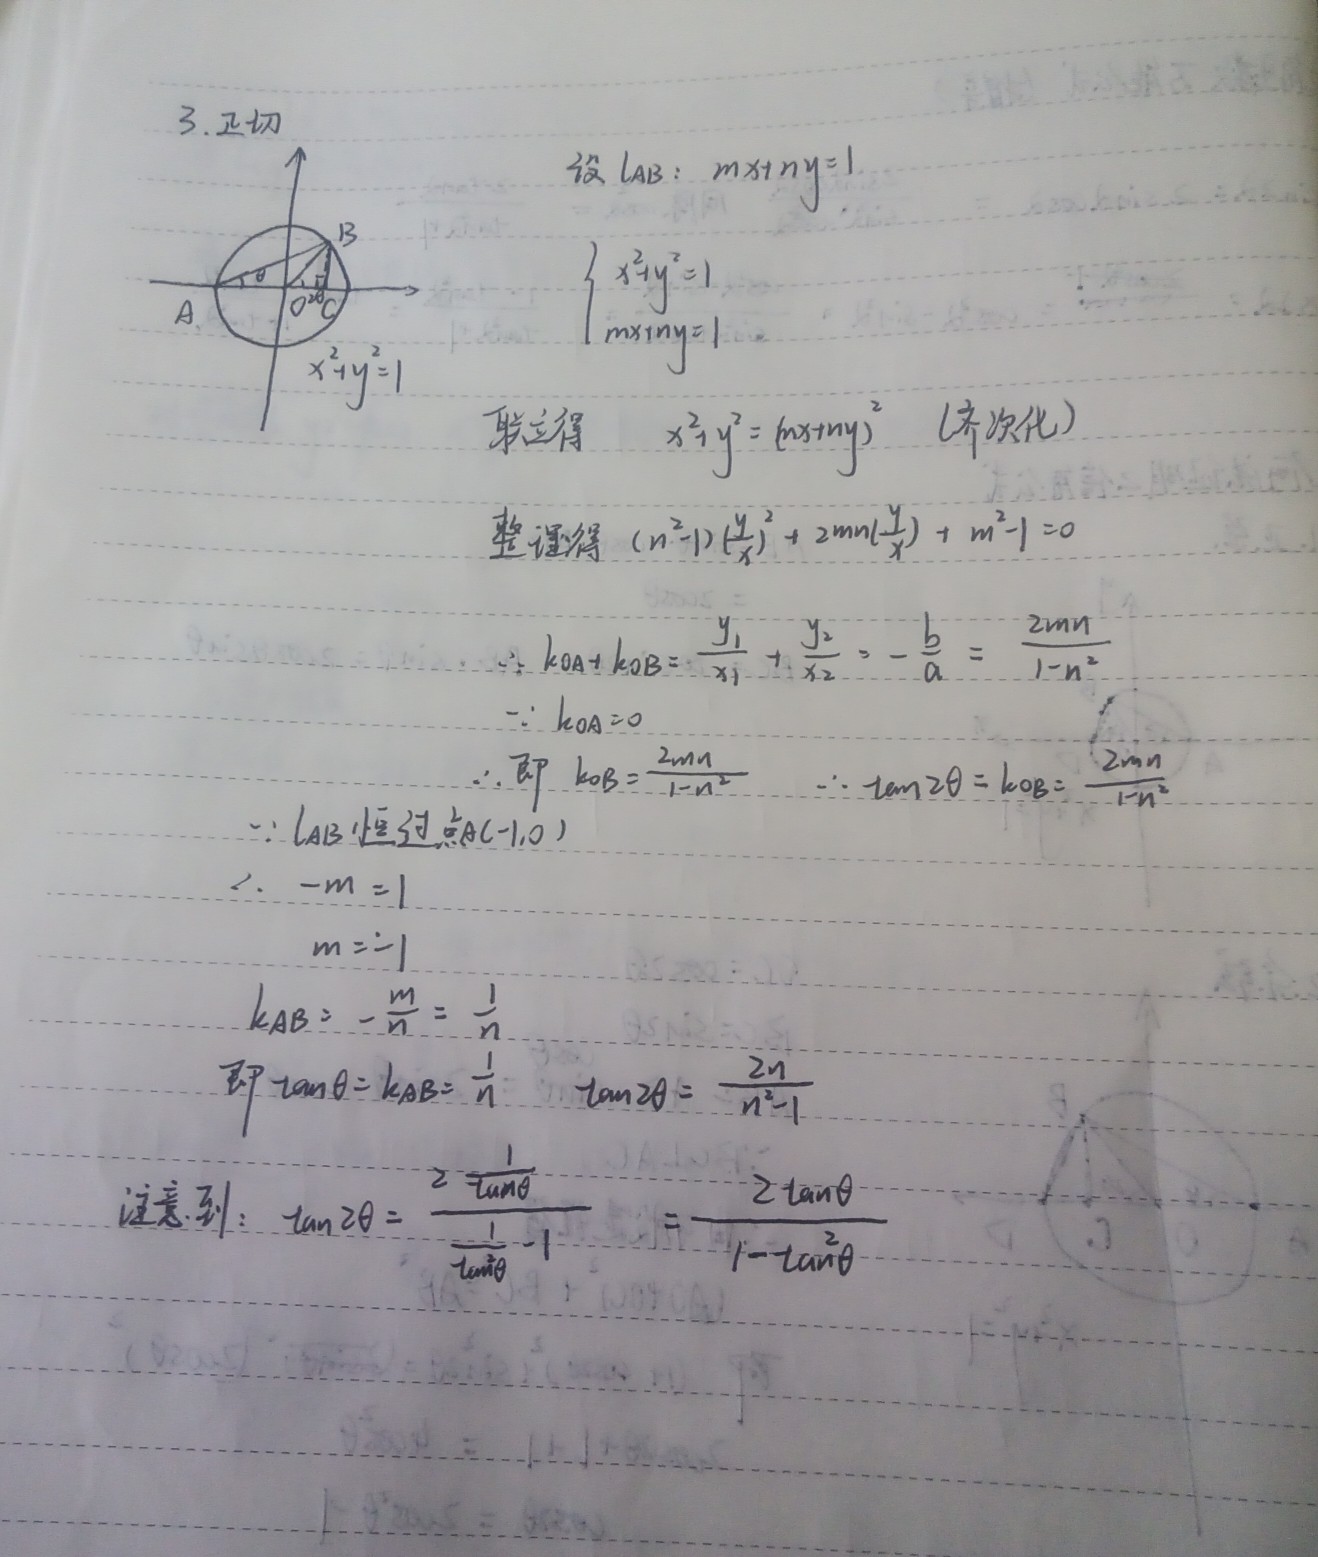 3.正切
设 lAB: mx+ny=1
B
θ
A
O
2θ
C
x²+y²=1
{ x²+y²=1
mx+ny=1
联立得 x²+y²=(mx+ny)² (齐次化)
整理得 (n²-1)(y/x)²+2mn(y/x)+m²-1=0
∴ kOA+kOB=y₁/x₁+y₂/x₂=-b/a=2mn/(1-n²)
∵ kOA=0
∴即 kOB=2mn/(1-n²) ∴ tan2θ=kOB=2mn/(1-n²)
∵ lAB恒过点A(-1,0)
∴ -m=1
m=-1
kAB=-m/n=1/n
即 tanθ=kAB=1/n tan2θ=2n/(n²-1)
注意到: tan2θ=(2 1/tanθ)/(1/tan²θ-1)=2tanθ/(1-tan²θ)